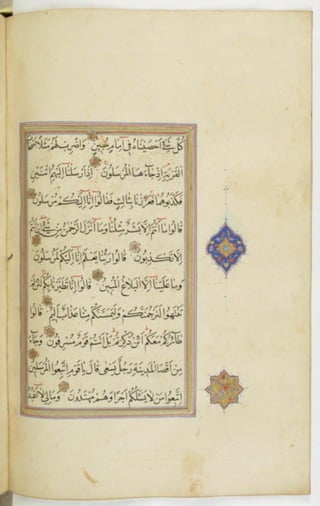 كل شئ احصيناه في امام مبين واضرب لهم مثلا اصحاب
القرية اذ جاءها المرسلون اذ ارسلنا اليهم اثنين
فكذبوهما فعززنا بثالث فقالوا انا اليكم مرسلون
قالوا ما انتم الا بشر مثلنا وما انزل الرحمن من شئ ان انتم
الا تكذبون قالوا ربنا يعلم انا اليكم لمرسلون
وما علينا الا البلاغ المبين قالوا انا تطيرنا بكم لئن لم
تنتهوا لنرجمنكم وليمسنكم منا عذاب اليم قالوا
طائركم معكم ائن ذكرتم بل انتم قوم مسرفون وجاء
من اقصا المدينة رجل يسعى قال يا قوم اتبعوا المرسلين
اتبعوا من لا يسئلكم اجرا وهم مهتدون ومالي لا اعبد